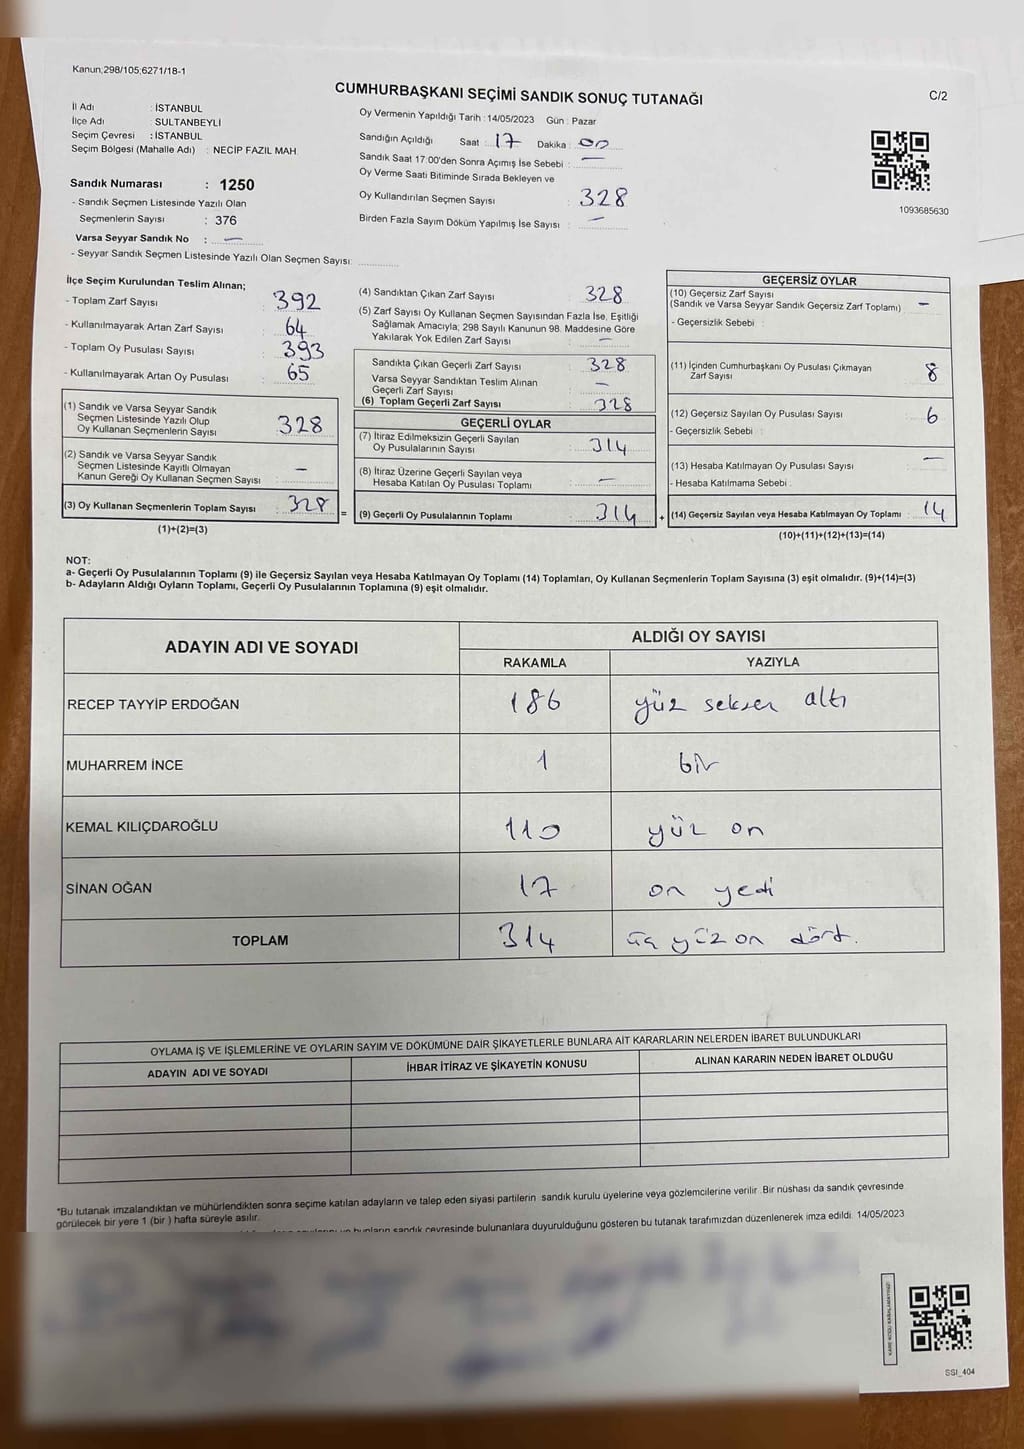 Kanun;298/105;6271/18-1
CUMHURBAŞKANI SEÇİMİ SANDIK SONUÇ TUTANAĞI
C/2
İl Adı : İSTANBUL
İlçe Adı : SULTANBEYLİ
Seçim Çevresi : İSTANBUL
Seçim Bölgesi (Mahalle Adı) : NECİP FAZIL MAH.
Sandık Numarası : 1250
- Sandık Seçmen Listesinde Yazılı Olan
Seçmenlerin Sayısı : 376
Varsa Seyyar Sandık No : —
- Seyyar Sandık Seçmen Listesinde Yazılı Olan Seçmen Sayısı:
Oy Vermenin Yapıldığı Tarih : 14/05/2023 Gün : Pazar
Sandığın Açıldığı Saat : 17 Dakika : 00
Sandık Saat 17:00'den Sonra Açımış İse Sebebi : —
Oy Verme Saati Bitiminde Sırada Bekleyen ve
Oy Kullandırılan Seçmen Sayısı : 328
Birden Fazla Sayım Döküm Yapılmış İse Sayısı : —
1093685630
İlçe Seçim Kurulundan Teslim Alınan;
- Toplam Zarf Sayısı : 392
- Kullanılmayarak Artan Zarf Sayısı : 64
- Toplam Oy Pusulası Sayısı : 393
- Kullanılmayarak Artan Oy Pusulası : 65
(1) Sandık ve Varsa Seyyar Sandık
Seçmen Listesinde Yazılı Olup
Oy Kullanan Seçmenlerin Sayısı : 328
(2) Sandık ve Varsa Seyyar Sandık
Seçmen Listesinde Kayıtlı Olmayan
Kanun Gereği Oy Kullanan Seçmen Sayısı : —
(3) Oy Kullanan Seçmenlerin Toplam Sayısı : 328
(1)+(2)=(3)
(4) Sandıktan Çıkan Zarf Sayısı : 328
(5) Zarf Sayısı Oy Kullanan Seçmen Sayısından Fazla İse, Eşitliği
Sağlamak Amacıyla; 298 Sayılı Kanunun 98. Maddesine Göre
Yakılarak Yok Edilen Zarf Sayısı : —
Sandıkta Çıkan Geçerli Zarf Sayısı : 328
Varsa Seyyar Sandıktan Teslim Alınan
Geçerli Zarf Sayısı : —
(6) Toplam Geçerli Zarf Sayısı : 328
GEÇERLİ OYLAR
(7) İtiraz Edilmeksizin Geçerli Sayılan
Oy Pusulalarının Sayısı : 314
(8) İtiraz Üzerine Geçerli Sayılan veya
Hesaba Katılan Oy Pusulası Toplamı : —
= (9) Geçerli Oy Pusulalarının Toplamı : 314
GEÇERSİZ OYLAR
(10) Geçersiz Zarf Sayısı
(Sandık ve Varsa Seyyar Sandık Geçersiz Zarf Toplamı) : —
- Geçersizlik Sebebi :
(11) İçinden Cumhurbaşkanı Oy Pusulası Çıkmayan
Zarf Sayısı : 8
(12) Geçersiz Sayılan Oy Pusulası Sayısı : 6
- Geçersizlik Sebebi :
(13) Hesaba Katılmayan Oy Pusulası Sayısı : —
- Hesaba Katılmama Sebebi :
+ (14) Geçersiz Sayılan veya Hesaba Katılmayan Oy Toplamı : 14
(10)+(11)+(12)+(13)=(14)
NOT:
a- Geçerli Oy Pusulalarının Toplamı (9) ile Geçersiz Sayılan veya Hesaba Katılmayan Oy Toplamı (14) Toplamları, Oy Kullanan Seçmenlerin Toplam Sayısına (3) eşit olmalıdır. (9)+(14)=(3)
b- Adayların Aldığı Oyların Toplamı, Geçerli Oy Pusulalarının Toplamına (9) eşit olmalıdır.
ADAYIN ADI VE SOYADI
ALDIĞI OY SAYISI
RAKAMLA YAZIYLA
RECEP TAYYİP ERDOĞAN 186 yüz seksen altı
MUHARREM İNCE 1 bir
KEMAL KILIÇDAROĞLU 110 yüz on
SİNAN OĞAN 17 on yedi
TOPLAM 314 üç yüz on dört.
OYLAMA İŞ VE İŞLEMLERİNE VE OYLARIN SAYIM VE DÖKÜMÜNE DAİR ŞİKAYETLERLE BUNLARA AİT KARARLARIN NELERDEN İBARET BULUNDUKLARI
ADAYIN ADI VE SOYADI İHBAR İTİRAZ VE ŞİKAYETİN KONUSU ALINAN KARARIN NEDEN İBARET OLDUĞU
*Bu tutanak imzalandıktan ve mühürlendikten sonra seçime katılan adayların ve talep eden siyasi partilerin sandık kurulu üyelerine veya gözlemcilerine verilir. Bir nüshası da sandık çevresinde
görülecek bir yere 1 (bir ) hafta süreyle asılır.
bunların sandık çevresinde bulunanlara duyurulduğunu gösteren bu tutanak tarafımızdan düzenlenerek imza edildi. 14/05/2023
SSİ_404